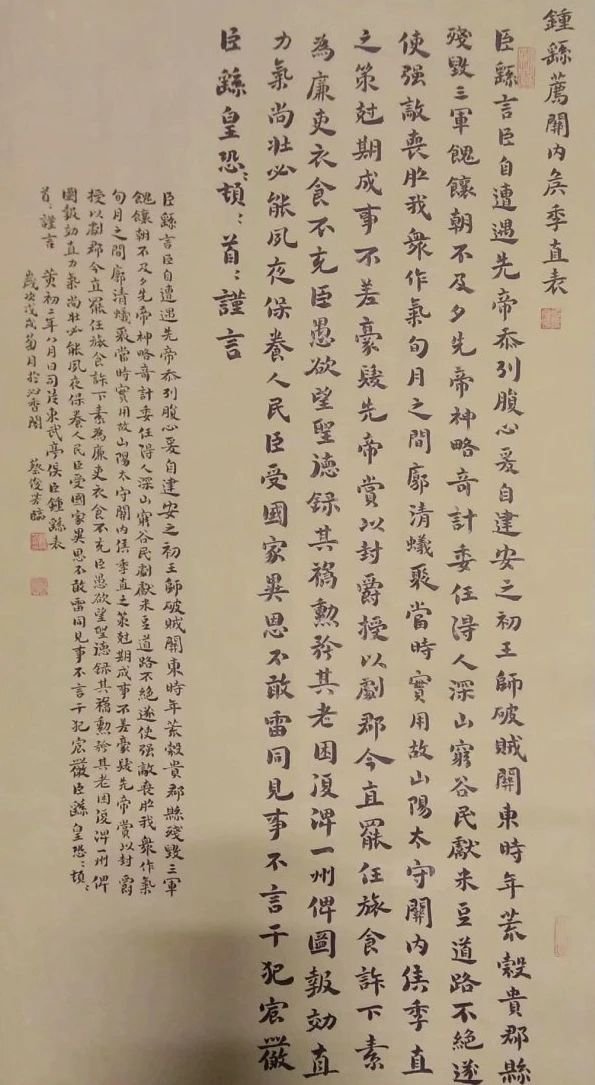 鍾繇薦關內侯季直表
臣繇言臣自遭遇先帝忝列腹心爰自建安之初王師破賊關東時年荒穀貴郡縣
殘毀三軍餽饟朝不及夕先帝神略奇計委任得人深山窮谷民獻米豆道路不絕遂
使强敵喪膽我衆作氣旬月之間廓清蟻聚當時實用故山陽太守關內侯季直
之策尅期成事不差豪髮先帝賞以封爵授以劇郡今直罷任旅食許下素
為廉吏衣食不充臣愚欲望聖德録其舊勳矜其老困復俾一州俾圖報効直
力氣尚壯必能夙夜保養人民臣受國家異恩不敢雷同見事不言干犯宸嚴
臣繇皇恐:頓:首:謹言
臣繇言臣自遭遇先帝忝列腹心爰自建安之初王師破賊關東時年荒穀貴郡縣殘毀三軍
餽饟朝不及夕先帝神略奇計委任得人深山窮谷民劇獻米豆道路不絕遂使强敵喪膽我衆作氣
旬月之間廓清蟻聚當時實用故山陽太守關內侯季直之策尅期成事不差豪髮先帝賞以封爵
授以劇郡今直罷任旅食許下素為廉吏衣食不充臣愚欲望聖德録其舊勳矜其老困復俾一州俾
圖報効直力氣尚壯必能夙夜保養人民臣受國家異恩不敢雷同見事不言干犯宸嚴臣繇皇恐:頓:
首:謹言 黄初二年八月日司徒東武亭侯臣鍾繇表
歲次戊戌菊月於沁香閣 蔡俊芳臨